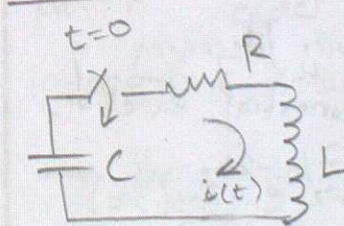 t=0
R
C
i(t)
L